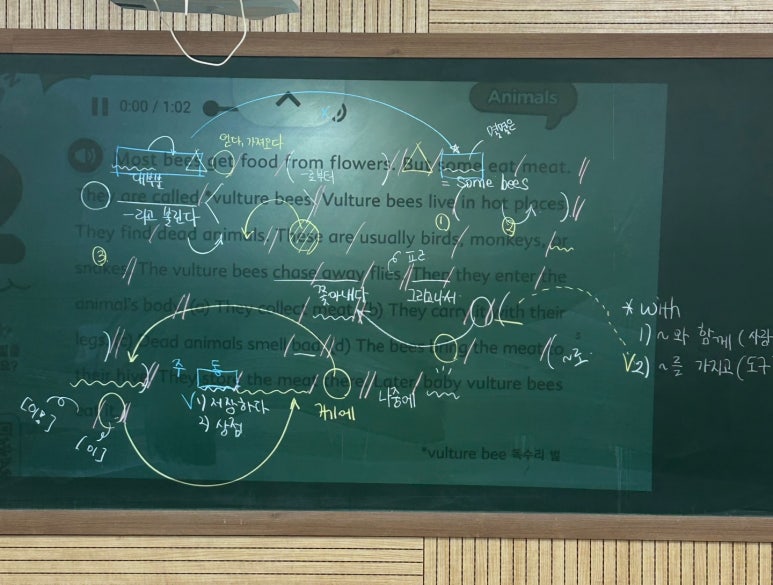 0:00 / 1:02
Animals
몇몇은
얻다, 가져오다
Most bees get food from flowers. But some eat meat.
대부분
~로부터
= some bees
They are called *vulture bees. Vulture bees live in hot places.
~라고 불린다
① ②
They find dead animals. These are usually birds, monkeys, or
③
파리
snakes. The vulture bees chase away flies. Then they enter the
쫓아내다
그러고나서
animal's body. (c) They collect meat. (b) They carry it with their
* with
1) ~와 함께 (사람
legs. (c) Dead animals smell bad. (d) The bees bring the meat to
(~로
V2) ~를 가지고 (도구
주 동
their hive. They store the meat there. Later, baby vulture bees
V 1) 저장하다
2) 상점
거기에
나중에
eat it.
[이]
*vulture bee 독수리 벌